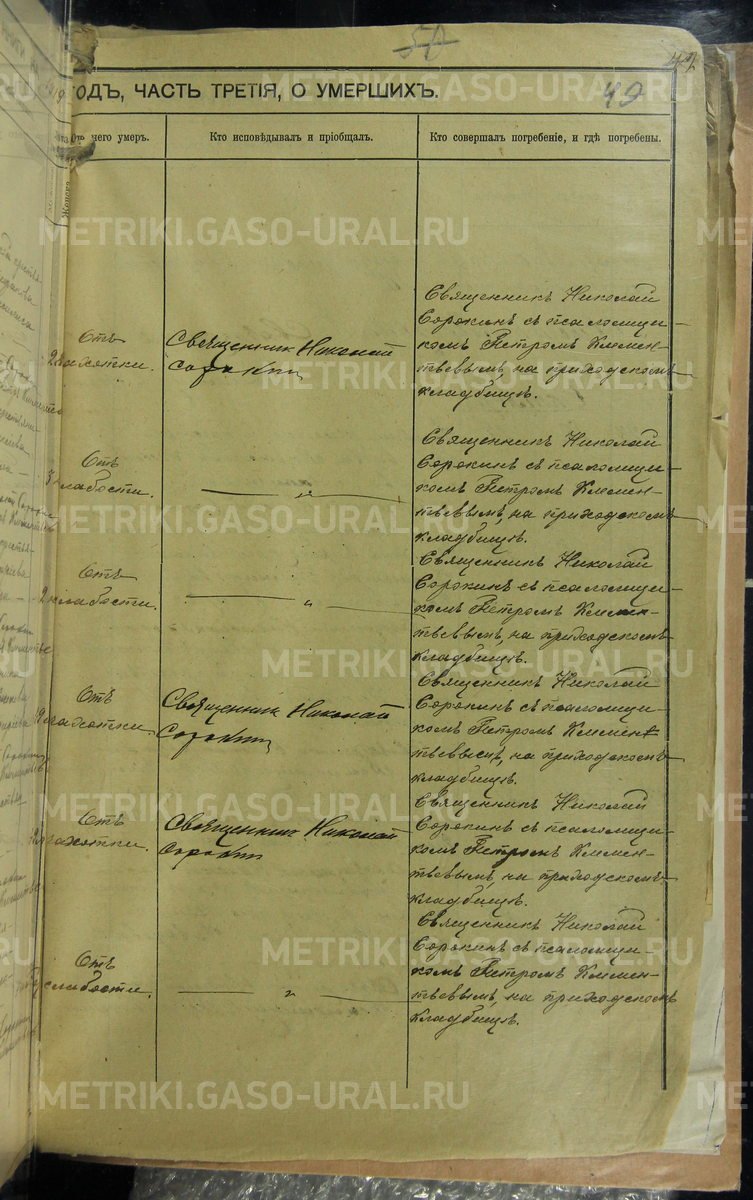 50
42
49
ГОДЪ, ЧАСТЬ ТРЕТІЯ, О УМЕРШИХЪ.
Отъ чего умеръ.
Кто исповѣдывалъ и пріобщалъ.
Кто совершалъ погребеніе, и гдѣ погребены.
Отъ
чахотки.
Священникъ Николай
Сорокин
Священникъ Николай
Сорокинъ съ псаломщи-
комъ Петромъ Климен-
тьевымъ, на приходскомъ
кладбищѣ.
Отъ
слабости.
— " —
Священникъ Николай
Сорокинъ съ псаломщи-
комъ Петромъ Климен-
тьевымъ, на приходскомъ
кладбищѣ.
Отъ
слабости.
— " —
Священникъ Николай
Сорокинъ съ псаломщи-
комъ Петромъ Климен-
тьевымъ, на приходскомъ
кладбищѣ.
Отъ
чахотки.
Священник Николай
Сорокин
Священникъ Николай
Сорокинъ съ псаломщи-
комъ Петромъ Климен-
тьевымъ, на приходскомъ
кладбищѣ.
Отъ
чахотки.
Священник Николай
Сорокин
Священникъ Николай
Сорокинъ съ псаломщи-
комъ Петромъ Климен-
тьевымъ, на приходскомъ
кладбищѣ.
Отъ
слабости.
— " —
Священникъ Николай
Сорокинъ съ псаломщи-
комъ Петромъ Климен-
тьевымъ, на приходскомъ
кладбищѣ.
METRIKI.GASO-URAL.RU